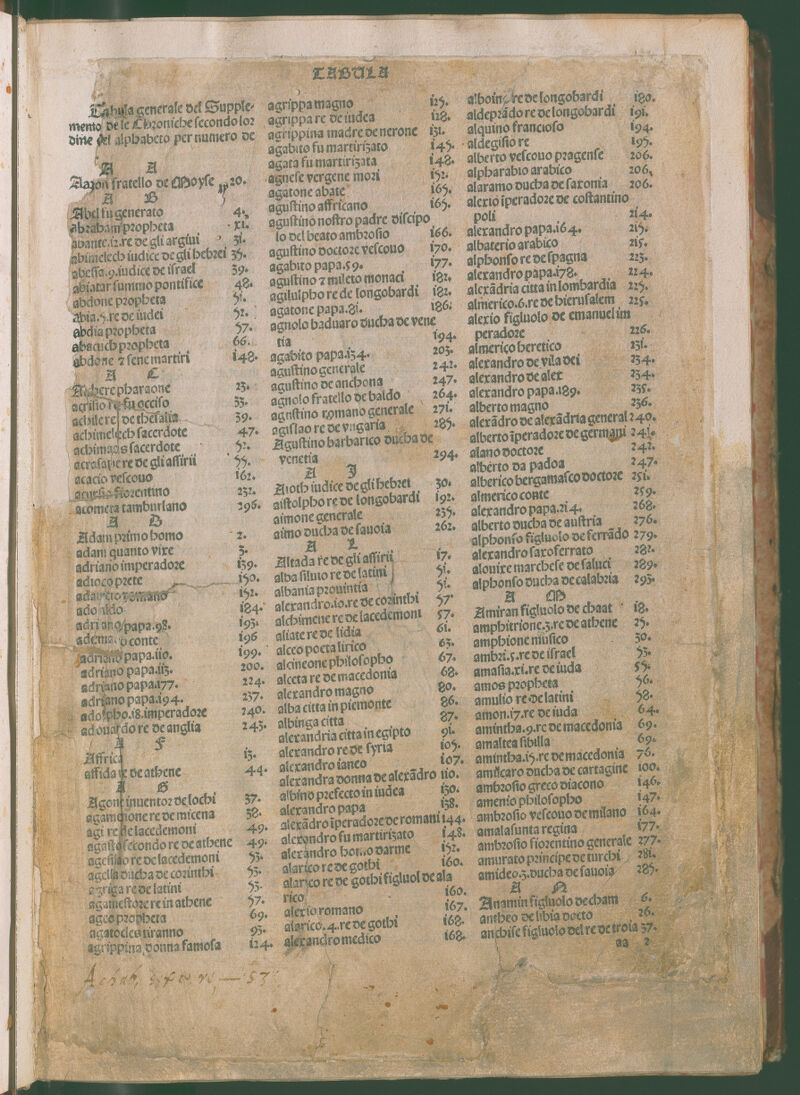 TABULA
Tabula generale del Supple-
mento de le Chroniche secondo lor
dine del alphabeto per numero de
A A
Aaron fratello de Moyse 20.
A B
Abel fu generato 4.
abraham propheta xi.
abante.12.re de gli argiui 31.
abimelech iudice de gli hebrei 35.
abessa.9.iudice de israel 39.
abiatar summo pontifice 48.
abdone propheta 51.
abia.5.re de iudei 52.
abdia propheta 57.
abacuch propheta 66.
abdone ⁊ sene martiri 148.
A C
Achere pharaone 23.
acrisio re fu occiso 33.
achile re de thesalia 39.
achimelech sacerdote 47.
achimaas sacerdote 52.
acrasape re de gli assirii 55.
acacio vescouo 162.
fiorentino 232.
acomera tamburlano 296.
A D
Adam primo homo 2.
adam quanto vixe 3.
adriano imperadore 139.
adioco prete 150.
romano 152.
adoaldo 184.
adriano papa.98. 193.
conte 196
adriano papa.110. 199.
adriano papa.113. 200.
adriano papa.177. 224.
adriano papa.194. 237.
adolpho.18.imperadore 240.
adouardo re de anglia 243.
A F
Affrica 13.
affida re de athene 44.
A G
Agon inuentor de lochi 37.
agamenone re de micena 38.
agi re de lacedemoni 49.
secondo re de athene 49.
agesilao re de lacedemoni 53.
agella ducha de corinthi 53.
agripa re de latini 53.
agamestore re in athene 57.
ageo propheta 69.
agatocles tiranno 93.
agrippina donna famosa 124.
agrippa magno 125.
agrippa re de iudea 128.
agrippina madre de nerone 131.
agabito fu martirizato 145.
agata fu martirizata 148.
agnese vergene mori 152.
agatone abate 165.
agustino affricano 165.
agustino nostro padre discipo
lo del beato ambrosio 166.
agustino doctore vescouo 170.
agabito papa.59. 177.
agustino ⁊ mileto monaci 182.
agilulpho re de longobardi 182.
agatone papa.81. 186.
agnolo baduaro ducha de vene
tia 194.
agabito papa.134. 203.
agustino generale 242.
agustino de anchona 247.
agnolo fratello de baldo 264.
agustino romano generale 271.
agislao re de vngaria 285.
Agustino barbarico ducha de
venetia 294.
A I
Aioth iudice de gli hebrei 30.
aistolpho re de longobardi 192.
aimone generale 235.
aimo ducha de sauoia 262.
A L
Altada re de gli assirii 17.
alba siluio re de latini 51.
albania prouintia 51.
alexandro.10.re de corinthi 57
alchimene re de lacedemoni 57.
aliate re de lidia 61.
alceo poeta lirico 63.
alcineone philosopho 67.
alceta re de macedonia 68.
alexandro magno 80.
alba citta in piemonte 86.
albinga citta 87.
alexandria citta in egipto 91.
alexandro re de syria 105.
alexandro ianeo 107.
alexandra donna de alexãdro 110.
albino prefecto in iudea 130.
alexandro papa 138.
alexãdro ĩperadore de romani 144.
alexandro fu martirizato 148.
alexandro homo darme 152.
alarico re de gothi 160.
alarico re de gothi figluol de ala
rico 160.
alexio romano 167.
alarico.4.re de gothi 168.
alexandro medico 168.
alboino re de longobardi 180.
aldeprãdo re de longobardi 191.
alquino francioso 194.
aldegisio re 195.
alberto vescouo pragense 206.
alpharabio arabico 206.
alaramo ducha de saxonia 206.
alexio ĩperadore de costantino
poli 214.
alexandro papa.164. 215.
albaterio arabico 215.
alphonso re de spagna 223.
alexandro papa.178. 224.
alexãdria citta in lombardia 225.
almerico.6.re de hierusalem 225.
alexio figluolo de emanuel im
peradore 226.
almerico heretico 231.
alexandro de vila dei 234.
alexandro de alex 234.
alexandro papa.189. 235.
alberto magno 236.
alexãdro de alexãdria general 240.
alberto ĩperadore de germani 241.
alano doctore 242.
alberto da padoa 247.
alberico bergamasco doctore 251.
almerico conte 259.
alexandro papa.214. 268.
alberto ducha de austria 276.
alphonso figluolo de ferrãdo 279.
alexandro saxoferrato 282.
alouixe marchese de saluci 289.
alphonso ducha de calabria 293.
A M
Amiran figluolo de chaat 18.
amphitrione.3.re de athene 25.
amphione musico 30.
ambri.5.re de israel 53.
amasia.xi.re de iuda 55.
amos propheta 56.
amulio re de latini 58.
amon.17.re de iuda 64.
amintha.9.re de macedonia 69.
amaltea sibilla 69.
amintha.15.re de macedonia 76.
amilcaro ducha de cartagine 100.
ambrosio greco diacono 146.
amenio philosopho 147.
ambrosio vescouo de milano 164.
amalasunta regina 177.
ambrosio fiorentino generale 277.
amurato principe de turchi 281.
amideo.3.ducha de sauoia 285.
A N
Anamin figluolo de cham 6.
antheo de libia docto 26.
anchise figluolo del re de troia 37.
aa 2